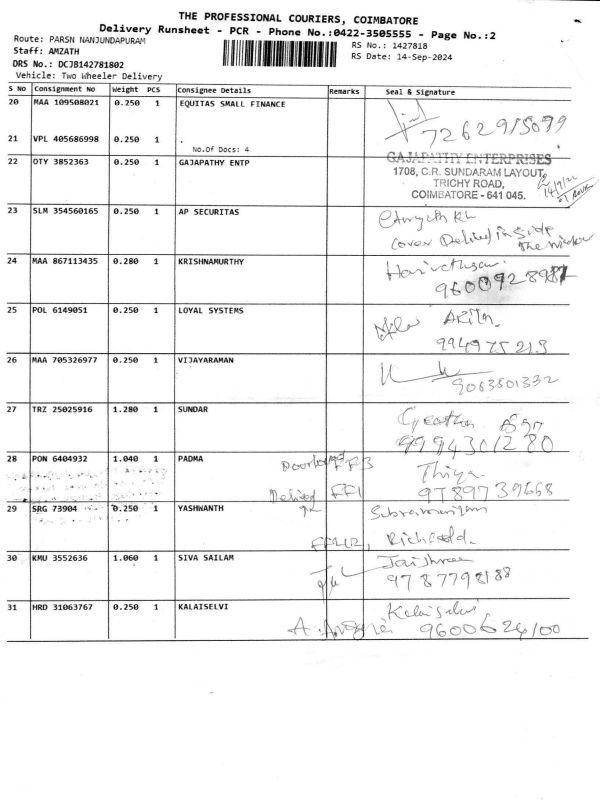 THE PROFESSIONAL COURIERS, COIMBATORE
Delivery Runsheet - PCR - Phone No.:0422-3505555 - Page No.:2
Route: PARSN NANJUNDAPURAM
RS No.: 1427818
Staff: AMZATH
RS Date: 14-Sep-2024
DRS No.: DCJB142781802
Vehicle: Two Wheeler Delivery
S No Consignment No Weight PCS Consignee Details Remarks Seal & Signature
20 MAA 109508021 0.250 1 EQUITAS SMALL FINANCE
7262915099
21 VPL 405686998 0.250 1
No.Of Docs: 4
22 OTY 3852363 0.250 1 GAJAPATHY ENTP
GAJAPATHY ENTERPRISES
1708, C.R. SUNDARAM LAYOUT,
TRICHY ROAD,
COIMBATORE - 641 045.
23 SLM 354560165 0.250 1 AP SECURITAS
Cover Delived in side
The window
24 MAA 867113435 0.280 1 KRISHNAMURTHY
25 POL 6149051 0.250 1 LOYAL SYSTEMS
9949752 213
26 MAA 705326977 0.250 1 VIJAYARAMAN
9063501332
27 TRZ 25025916 1.280 1 SUNDAR
9994301280
28 PON 6404932 1.040 1 PADMA
FF3
Thiya
9789739668
Delived FF1
29 SRG 73904 0.250 1 YASHWANTH
Subramaniyam
Richard.
30 KMU 3552636 1.060 1 SIVA SAILAM
Jaishree
9787798188
31 HRD 31063767 0.250 1 KALAISELVI
Kalaiselvi
9600624100